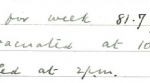 for week 81.7
evacuated at 10
ed at 2 p.m.